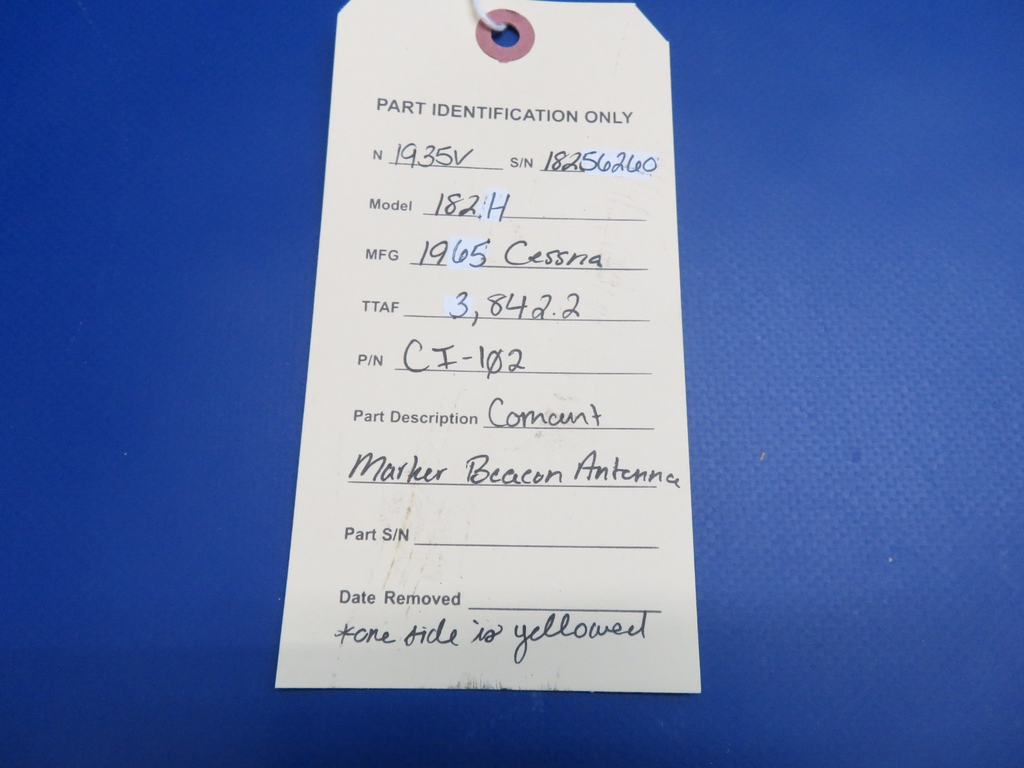 PART IDENTIFICATION ONLY
N 1935V S/N 18256260
Model 182H
MFG 1965 Cessna
TTAF 3,842.2
P/N CI-102
Part Description Comant
Marker Beacon Antenna
Part S/N
Date Removed
*one side is yellowed